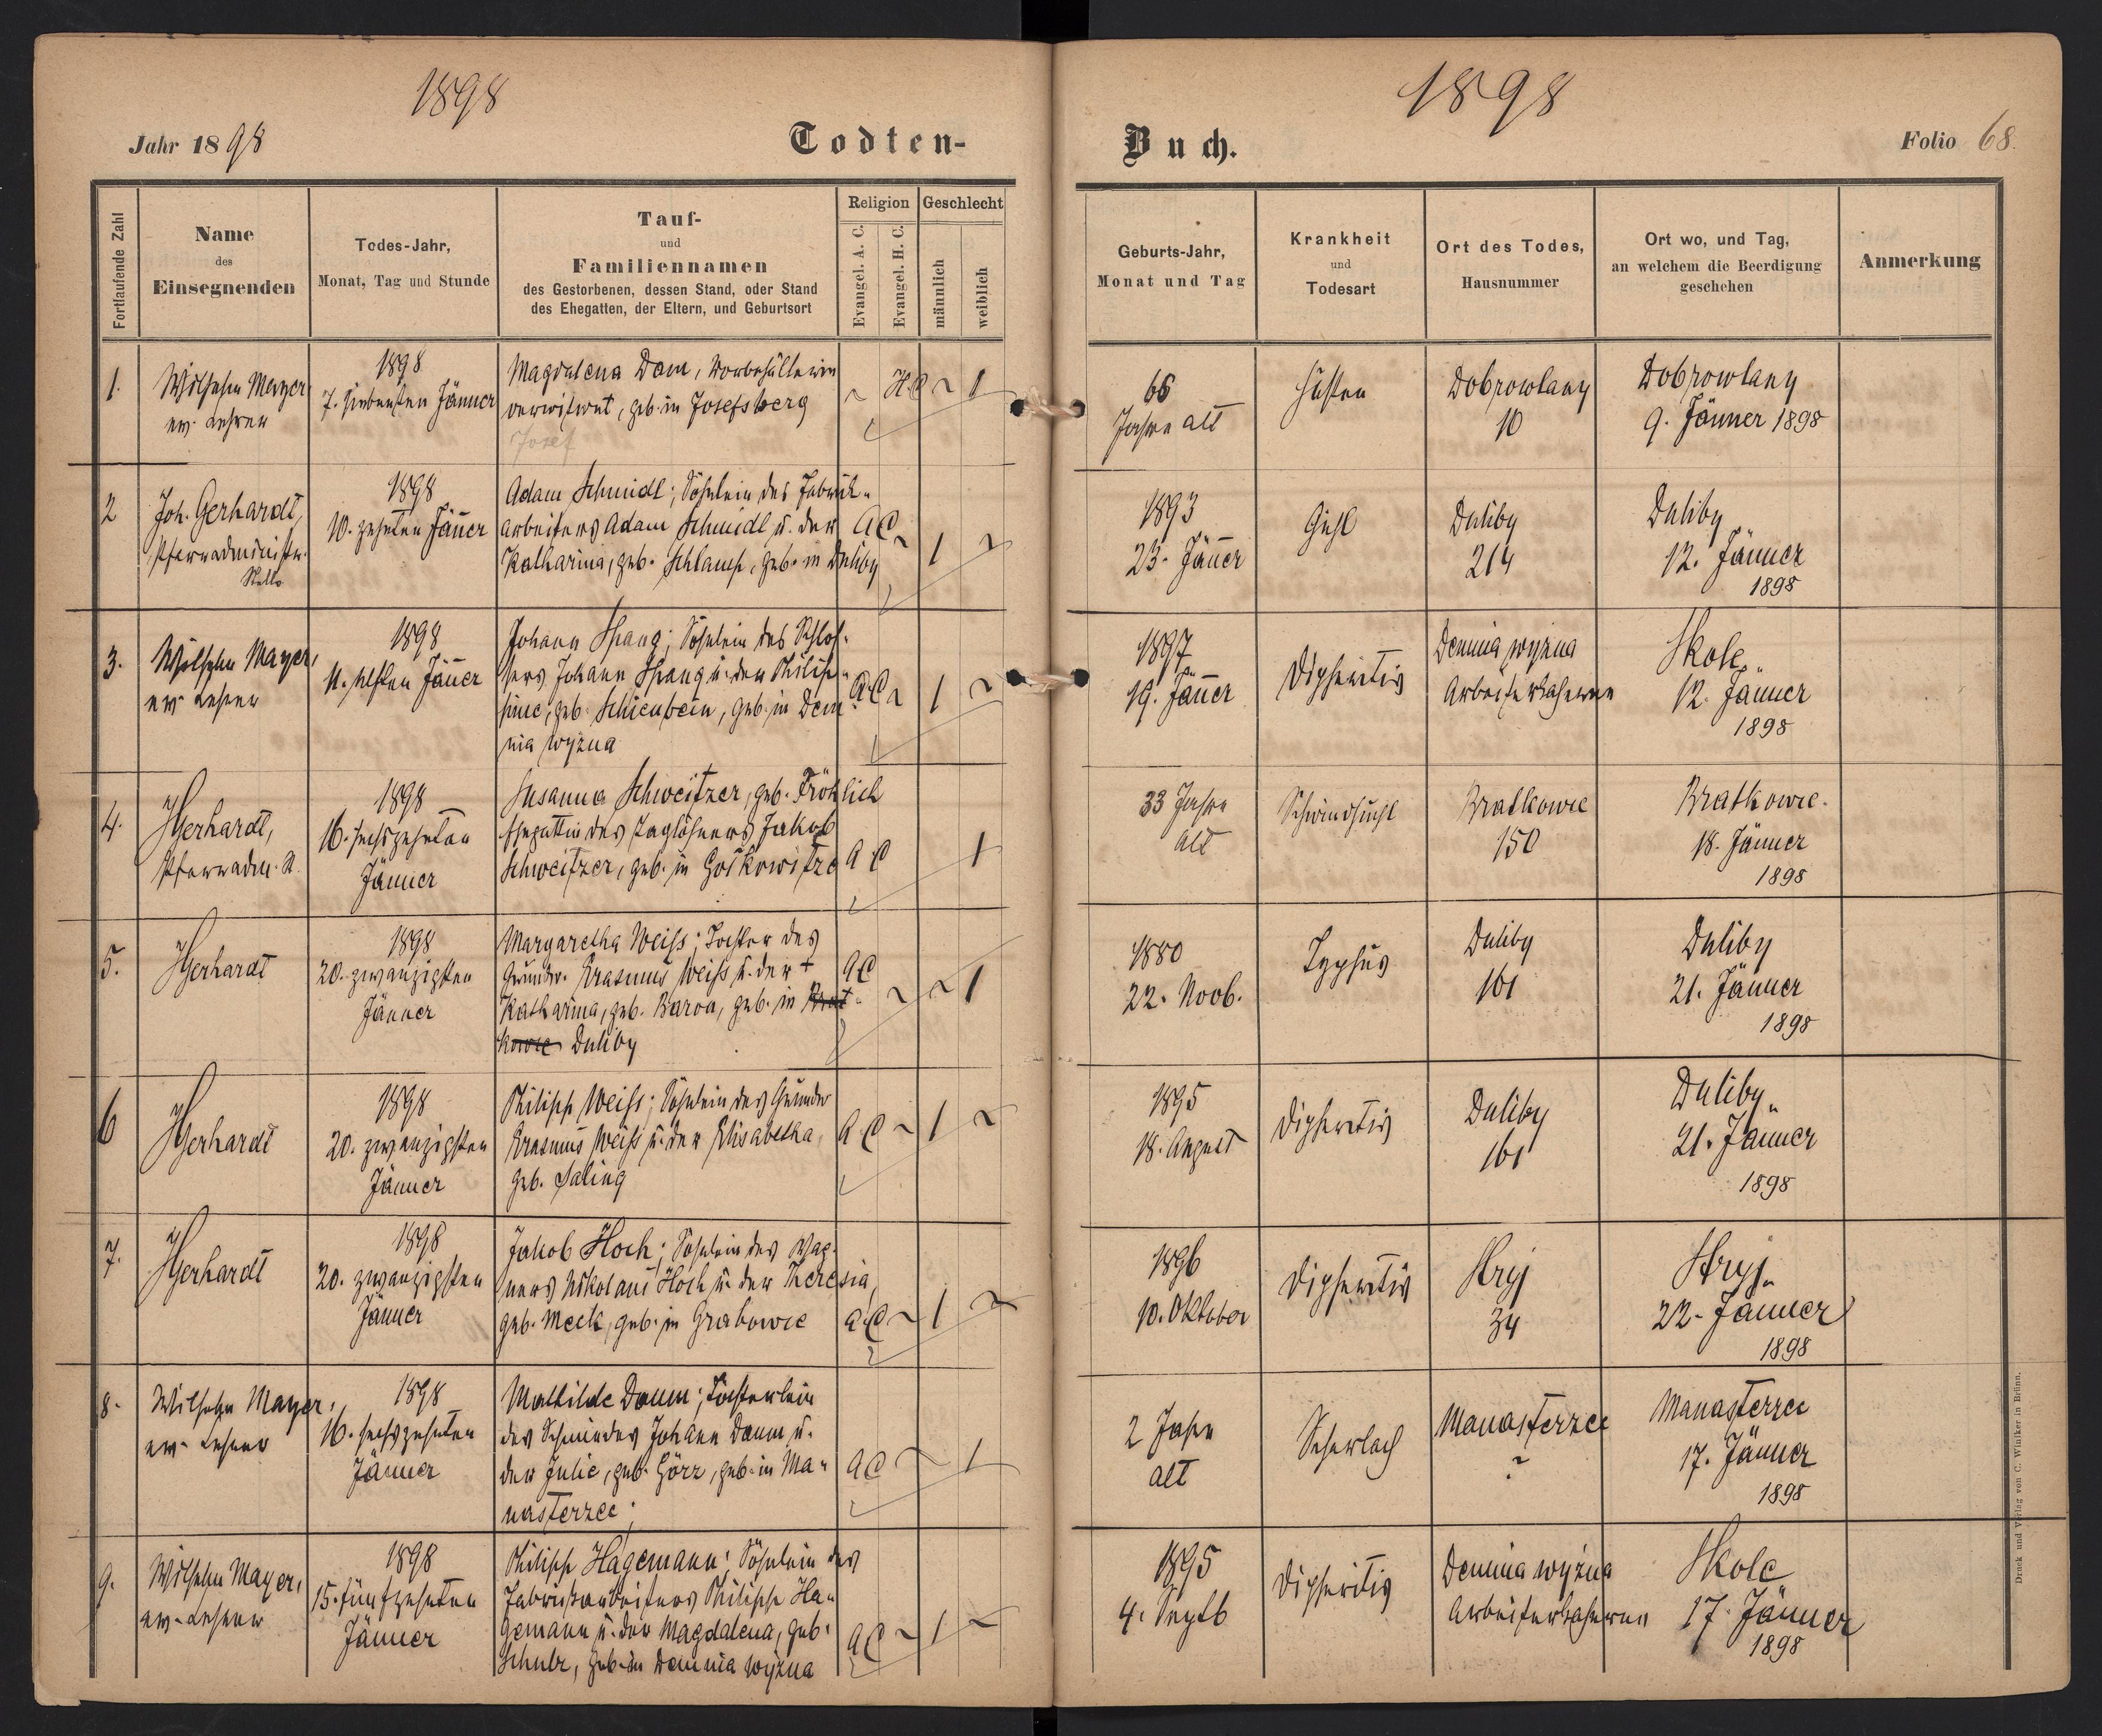 1898
Jahr 1898
Todten-
Fortlaufende Zahl
Name
des
Einsegnenden
Todes-Jahr,
Monat, Tag und Stunde
Tauf-
und
Familiennamen
des Gestorbenen, dessen Stand, oder Stand
des Ehegatten, der Eltern, und Geburtsort
Religion
Evangel. A. C.
Evangel. H. C.
Geschlecht
männlich
weiblich
1.
Wilhelm Mayer
ev. Lehrer
1898
7. siebenten Jänner
Magdalena Dom,
verwitwet, geb. in Josefsberg
Josef
H.C
1
2
Joh. Gerhardt,
Pfarradministr.
1898
10. zehnten Jäner
Adam Schmidt; Söhnlein des Fabrik-
arbeiters Adam Schmidt u. der
Katharina, geb. Schlamp, geb. in Duliby
A C
1
3.
Wilhelm Mayer,
ev. Lehrer
1898
11. elften Jäner
Johann Spang; Söhnlein des Schlos-
sers Johann Spang u. der Philip-
pine, geb. Schienbein, geb. in Dem-
nia wyzna
A C
1
4.
JGerhardt,
Pfarradm. St.
1898
16. sechszehnten
Jänner
Susanna Schweitzer, geb. Fröhlich
Ehegattin des Taglöhners Jakob
Schweitzer, geb. in
A C
1
5.
JGerhardt
1898
20. zwanzigsten
Jänner
Margaretha Weiss; Tochter des
Grundw. Erasmus Weiss u. der †
Katharina, geb. Baron, geb. in Brat-
kowce Duliby
A C
1
6
JGerhardt
1898
20. zwanzigsten
Jänner
Philipp Weiss; Söhnlein des Grundw
Erasmus Weiss u. der Elisabetha,
geb. Saling
A C
1
7.
JGerhardt
1898
20. zwanzigsten
Jänner
Jakob Hoch; Söhnlein des Wag-
ners Nikolaus Hoch u. der Theresia,
geb. Meck, geb. in Grabowce
A C
1
8.
Wilhelm Mayer,
ev. Lehrer
1898
16. sechszehnten
Jänner
Mathilde Daum; Töchterlein
des Schmiedes Johann Daum u.
der Julie, geb. Görz, geb. in Ma-
nasterzec;
A C
1
9.
Wilhelm Mayer,
ev. Lehrer
1898
15. fünfzehnten
Jänner
Philipp Hagemann; Söhnlein des
Fabriksarbeiters Philipp Ha-
gemann u. der Magdalena, geb.
Schulz, geb. in Demnia wyzna
A C
1
1898
Buch.
Folio 68.
Geburts-Jahr,
Monat und Tag
Krankheit
und
Todesart
Ort des Todes,
Hausnummer
Ort wo, und Tag,
an welchem die Beerdigung
geschehen
Anmerkung
66
Jahre alt
Husten
Dobrowlany
10
Dobrowlany
9. Jänner 1898
1893
23. Jäner
Gicht
Duliby
214
Duliby
12. Jänner
1898
1897
19. Jäner
Dipheritis
Demnia wyzna
Arbeiterkaserne
Skole
12. Jänner
1898
33 Jahre
alt
Schwindsucht
Bratkowce
150
Bratkowce.
18. Jänner
1898
1880
22. Novb.
Typhus
Duliby
161
Duliby
21. Jänner
1898
1895
18. August
Dipheritis
Duliby
161
Duliby
21. Jänner
1898
1896
10. Oktober
Dipheritis
Stryj
34
Stryj
22. Jänner
1898
2 Jahre
alt
Scharlach
Manasterzec
?
Manasterzec
17. Jänner
1898
1895
4. Septb
Dipheritis
Demnia wyżna
Arbeiterkaserne
Skole
17. Jänner
1898
Druck und Verlag von C. Winiker in Brünn.